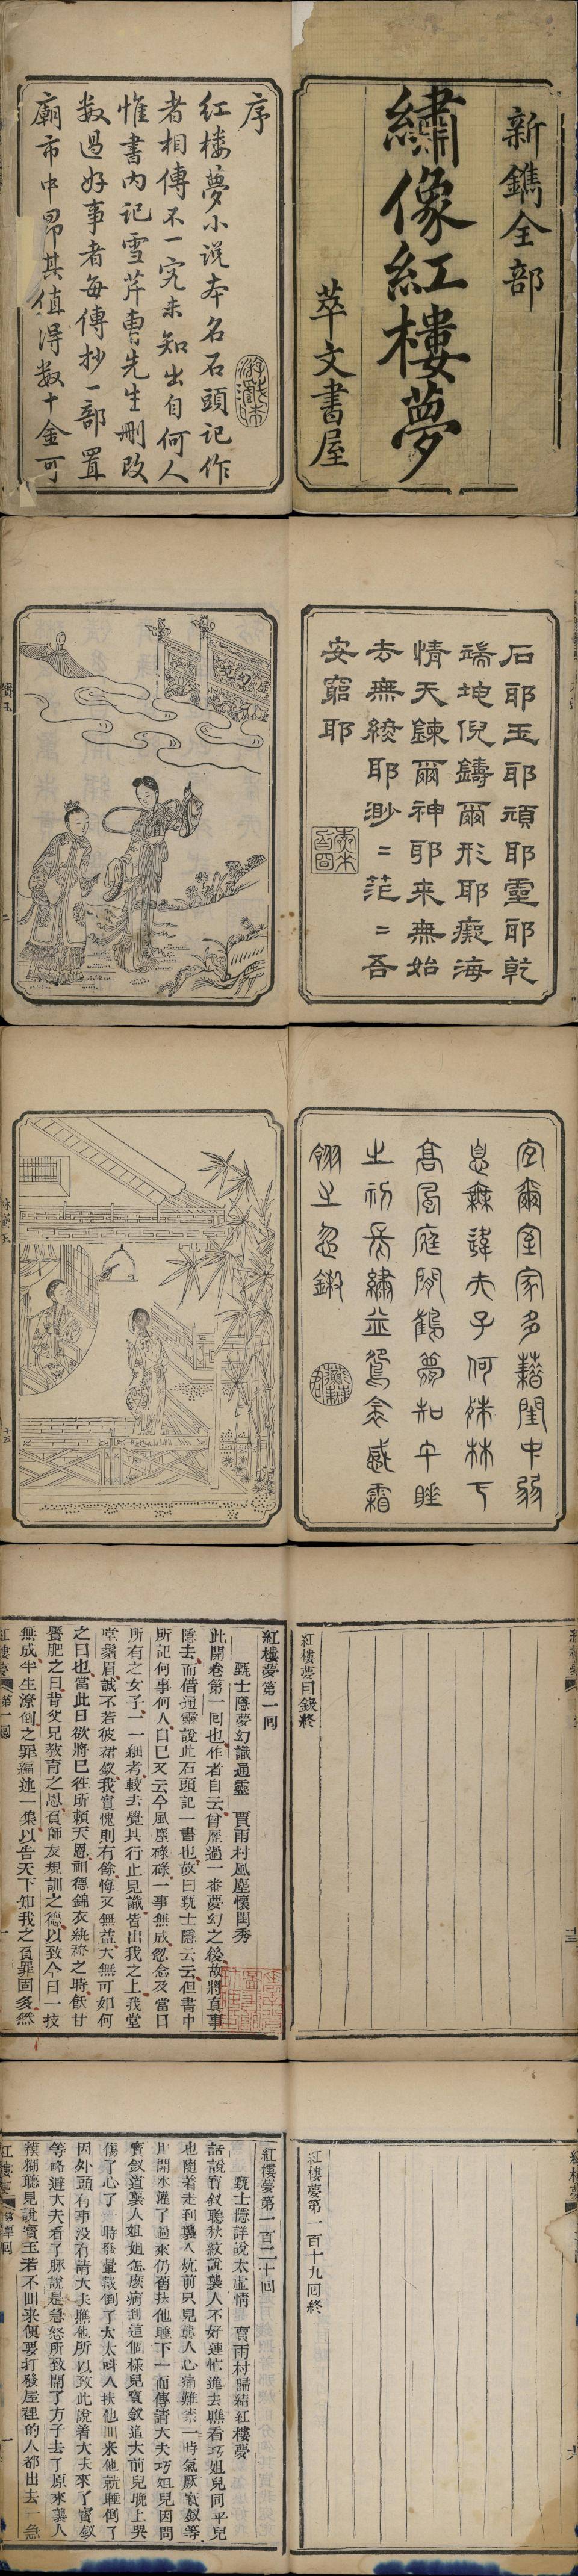 新鐫全部
繡像紅樓夢
萃文書屋
序
紅樓夢小說本名石頭記作
者相傳不一究未知出自何人
惟書內記雪芹曹先生刪改
數過好事者每傳抄一部置
廟市中昂其值得數十金可
石耶玉耶頑耶靈耶乾
端坤倪鑄爾形耶癡海
情天鍊爾神耶来無始
去無終耶渺〻茫〻吾
安窮耶
寶玉
二
宜爾室家多藉閨中弱
息無違夫子何殊林下
高風庭閒鶴夢和午睡
林黛玉
十五
紅樓夢目錄終
紅樓夢第一回
甄士隱夢幻識通靈 賈雨村風塵懷閨秀
此開卷第一回也作者自云曾歷過一番夢幻之後故將真事
隱去而借通靈說此石頭記一書也故曰甄士隱云云但書中
所記何事何人自己又云今風塵碌碌一事無成忽念及當日
所有之女子一一細考較去覺其行止見識皆出我之上我堂
堂鬚眉誠不若彼裙釵我實愧則有餘悔又無益大無可如何
之日也當此日欲將已往所賴天恩祖德錦衣紈袴之時飫甘
饜肥之日背父兄教育之恩負師友規訓之德以致今日一技
無成半生潦倒之罪編述一集以告天下知我之負罪固多然
紅樓夢 第一回
一
紅樓夢第一百十九回終
紅樓夢第一百二十回
甄士隱詳說太虛情 賈雨村歸結紅樓夢
話說寶釵聽秋紋說襲人不好連忙進去瞧看巧姐兒同平兒
也隨着走到襲人炕前只見襲人心痛難禁一時氣厥寶釵等
用開水灌了過來仍舊扶他睡下一面傳請大夫巧姐兒因問
寶釵道襲人姐姐怎麼病到這個樣兒寶釵道大前兒晚上哭
傷了心了一時發暈栽倒了太太叫人扶他回來他就睡倒了
因外頭有事没有請大夫瞧他所以致此說着大夫來了寶釵
等略避大夫看了脉說是急怒所致開了方子去了原來襲人
模糊聽見說寶玉若不回來便要打發屋裡的人都出去一急
紅樓夢
一